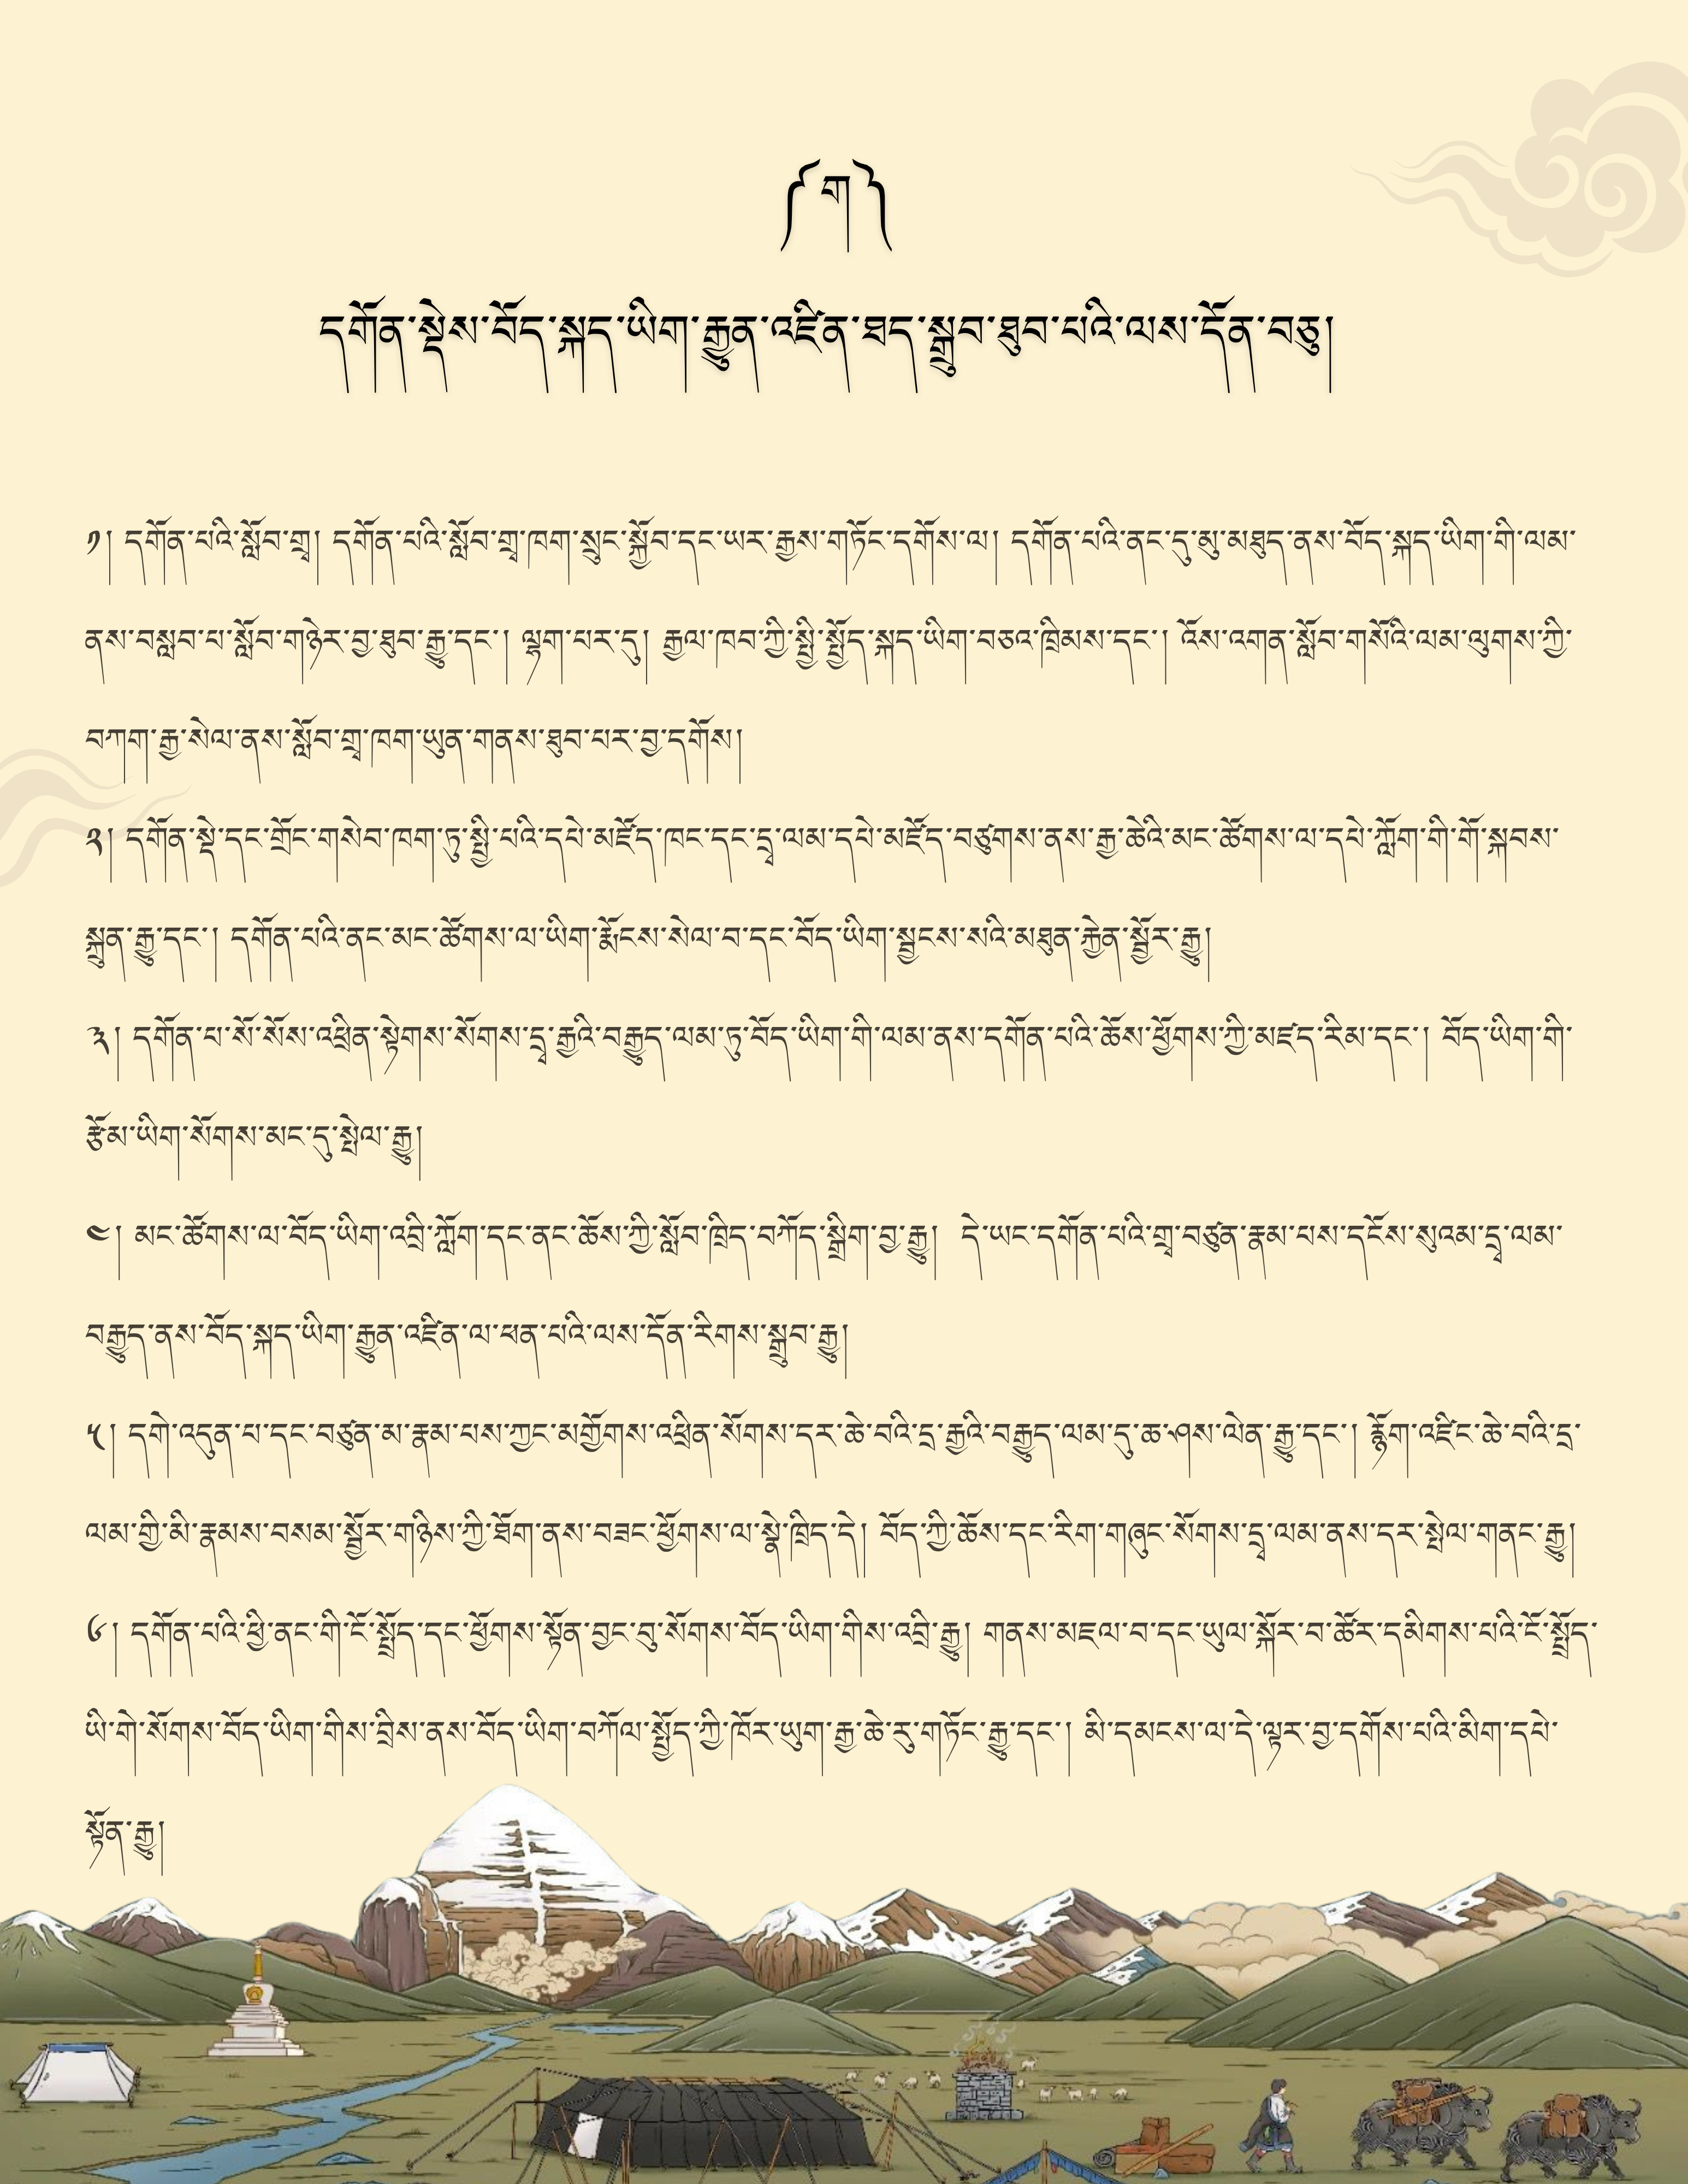 ༼ག༽
དགོན་སྡེས་བོད་སྐད་ཡིག་རྒྱུན་འཛིན་ཐད་སྒྲུབ་ཐུབ་པའི་ལས་དོན་བཅུ།
༡། དགོན་པའི་སློབ་གྲྭ། དགོན་པའི་སློབ་གྲྭ་ཁག་སྲུང་སྐྱོབ་དང་ཡར་རྒྱས་གཏོང་དགོས་ལ། དགོན་པའི་ནང་དུ་མུ་མཐུད་ནས་བོད་སྐད་ཡིག་གི་ལམ་
ནས་བསླབ་པ་སློབ་གཉེར་བྱ་ཐུབ་རྒྱུ་དང་། ལྷག་པར་དུ། རྒྱལ་ཁབ་ཀྱི་སྤྱི་སྤྱོད་སྐད་ཡིག་བཅའ་ཁྲིམས་དང་། འོས་འགན་སློབ་གསོའི་ལམ་ལུགས་ཀྱི་
བཀག་རྒྱ་སེལ་ནས་སློབ་གྲྭ་ཁག་ཡུན་གནས་ཐུབ་པར་བྱ་དགོས།
༢། དགོན་སྡེ་དང་གྲོང་གསེབ་ཁག་ཏུ་སྤྱི་པའི་དཔེ་མཛོད་ཁང་དང་དྲྭ་ལམ་དཔེ་མཛོད་བཙུགས་ནས་རྒྱ་ཆེའི་མང་ཚོགས་ལ་དཔེ་ཀློག་གི་གོ་སྐབས་
སྐྲུན་རྒྱུ་དང་། དགོན་པའི་ནང་མང་ཚོགས་ལ་ཡིག་རྨོངས་སེལ་བ་དང་བོད་ཡིག་སྦྱངས་སའི་མཐུན་རྐྱེན་སྦྱོར་རྒྱུ།
༣། དགོན་པ་སོ་སོས་འཕྲིན་སྟེགས་སོགས་དྲྭ་རྒྱའི་བརྒྱུད་ལམ་ཏུ་བོད་ཡིག་གི་ལམ་ནས་དགོན་པའི་ཆོས་ཕྱོགས་ཀྱི་མཛད་རིམ་དང་། བོད་ཡིག་གི་
རྩོམ་ཡིག་སོགས་མང་དུ་སྤེལ་རྒྱུ།
༤། མང་ཚོགས་ལ་བོད་ཡིག་འབྲི་ཀློག་དང་ནང་ཆོས་ཀྱི་སློབ་ཁྲིད་བཀོད་སྒྲིག་བྱ་རྒྱུ། དེ་ཡང་དགོན་པའི་གྲྭ་བཙུན་རྣམ་པས་དངོས་སུའམ་དྲྭ་ལམ་
བརྒྱུད་ནས་བོད་སྐད་ཡིག་རྒྱུན་འཛིན་ལ་ཕན་པའི་ལས་དོན་རིགས་སྒྲུབ་རྒྱུ།
༥། དགེ་འདུན་པ་དང་བཙུན་མ་རྣམ་པས་ཀྱང་མགྱོགས་འཕྲིན་སོགས་དར་ཆེ་བའི་དྲ་རྒྱའི་བརྒྱུད་ལམ་དུ་ཆ་ཤས་ལེན་རྒྱུ་དང་། རྙོག་འཛིང་ཆེ་བའི་དྲ་
ལམ་གྱི་མི་རྣམས་བསམ་སྦྱོར་གཉིས་ཀྱི་ཐོག་ནས་བཟང་ཕྱོགས་ལ་སྣེ་ཁྲིད་དེ། བོད་ཀྱི་ཆོས་དང་རིག་གཞུང་སོགས་དྲྭ་ལམ་ནས་དར་སྤེལ་གནང་རྒྱུ།
༦། དགོན་པའི་ཕྱི་ནང་གི་ངོ་སྤྲོད་དང་ཕྱོགས་སྟོན་བྱང་བུ་སོགས་བོད་ཡིག་གིས་འབྲི་རྒྱུ། གནས་མཇལ་བ་དང་ཡུལ་སྐོར་བ་ཚོར་དམིགས་པའི་ངོ་སྤྲོད་
ཡི་གེ་སོགས་བོད་ཡིག་གིས་བྲིས་ནས་བོད་ཡིག་བཀོལ་སྤྱོད་ཀྱི་ཁོར་ཡུག་རྒྱ་ཆེ་རུ་གཏོང་རྒྱུ་དང་། མི་དམངས་ལ་དེ་ལྟར་བྱ་དགོས་པའི་མིག་དཔེ་
སྟོན་རྒྱུ།